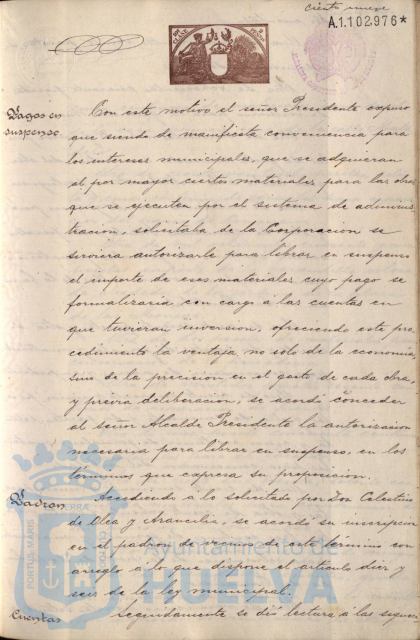 ciento nueve
A.1.102.976*
Pagos en
suspenso.
Con este motivo el señor Presidente expuso
que siendo de manifiesta conveniencia para
los intereses municipales, que se adquieran
al por mayor ciertos materiales para las obras
que se ejecuten por el sistema de adminis-
tracion, solicitaba de la Corporacion se
sirviera autorizarle para librar en suspenso
el importe de esos materiales cuyo pago se
formalizaria con cargo á las cuentas en
que tuvieran inversion, ofreciendo este pro-
cedimiento la ventaja, no solo de la economia,
sino de la precision en el gasto de cada obra,
y previa deliberacion, se acordó conceder
al señor Alcalde Presidente la autorizacion
necesaria para librar en suspenso, en los
términos que expresa su proposicion.
Padron
Accediendo á lo solicitado por Don Celestino
de Ulea y Arancilia, se acordó su inscripcion
en el padron de vecinos de este término con
arreglo á lo que dispone el articulo diez y
seis de la ley municipal.
Cuentas
Seguidamente se dió lectura á las siguien-
PORTUS MARIS
Ayuntamiento de
HUELVA